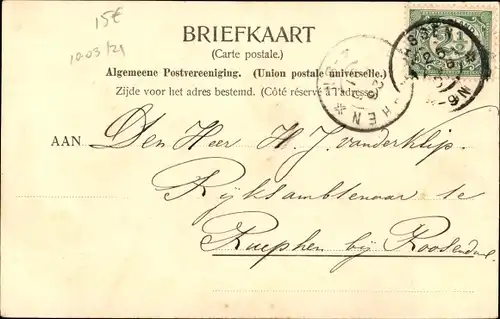 15€
1003/21
BRIEFKAART
(Carte postale.)
Algemeene Postvereeniging. (Union postale universelle.)
Zijde voor het adres bestemd. (Côté réservé à l'adresse.)
AAN Den Heer H. J. van der Klip.
Rijksambtenaar te
Rucphen bij Roosendaal